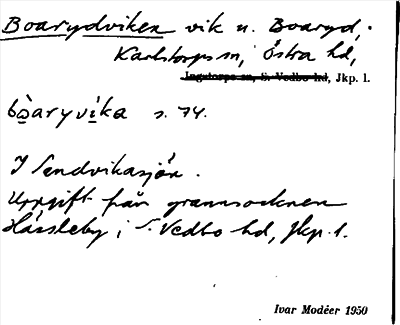 Boarydviken vik u. Boaryd,
Karlstorps sn, Östra hd,
Ingatorps sn, S. Vedbo hd, Jkp. l.
bòaryvíka s. 74.
I Sendvikasjön.
Uppgift från grannsocknen
Hässleby i S. Vedbo hd, Jkp. l.
Ivar Modéer 1950